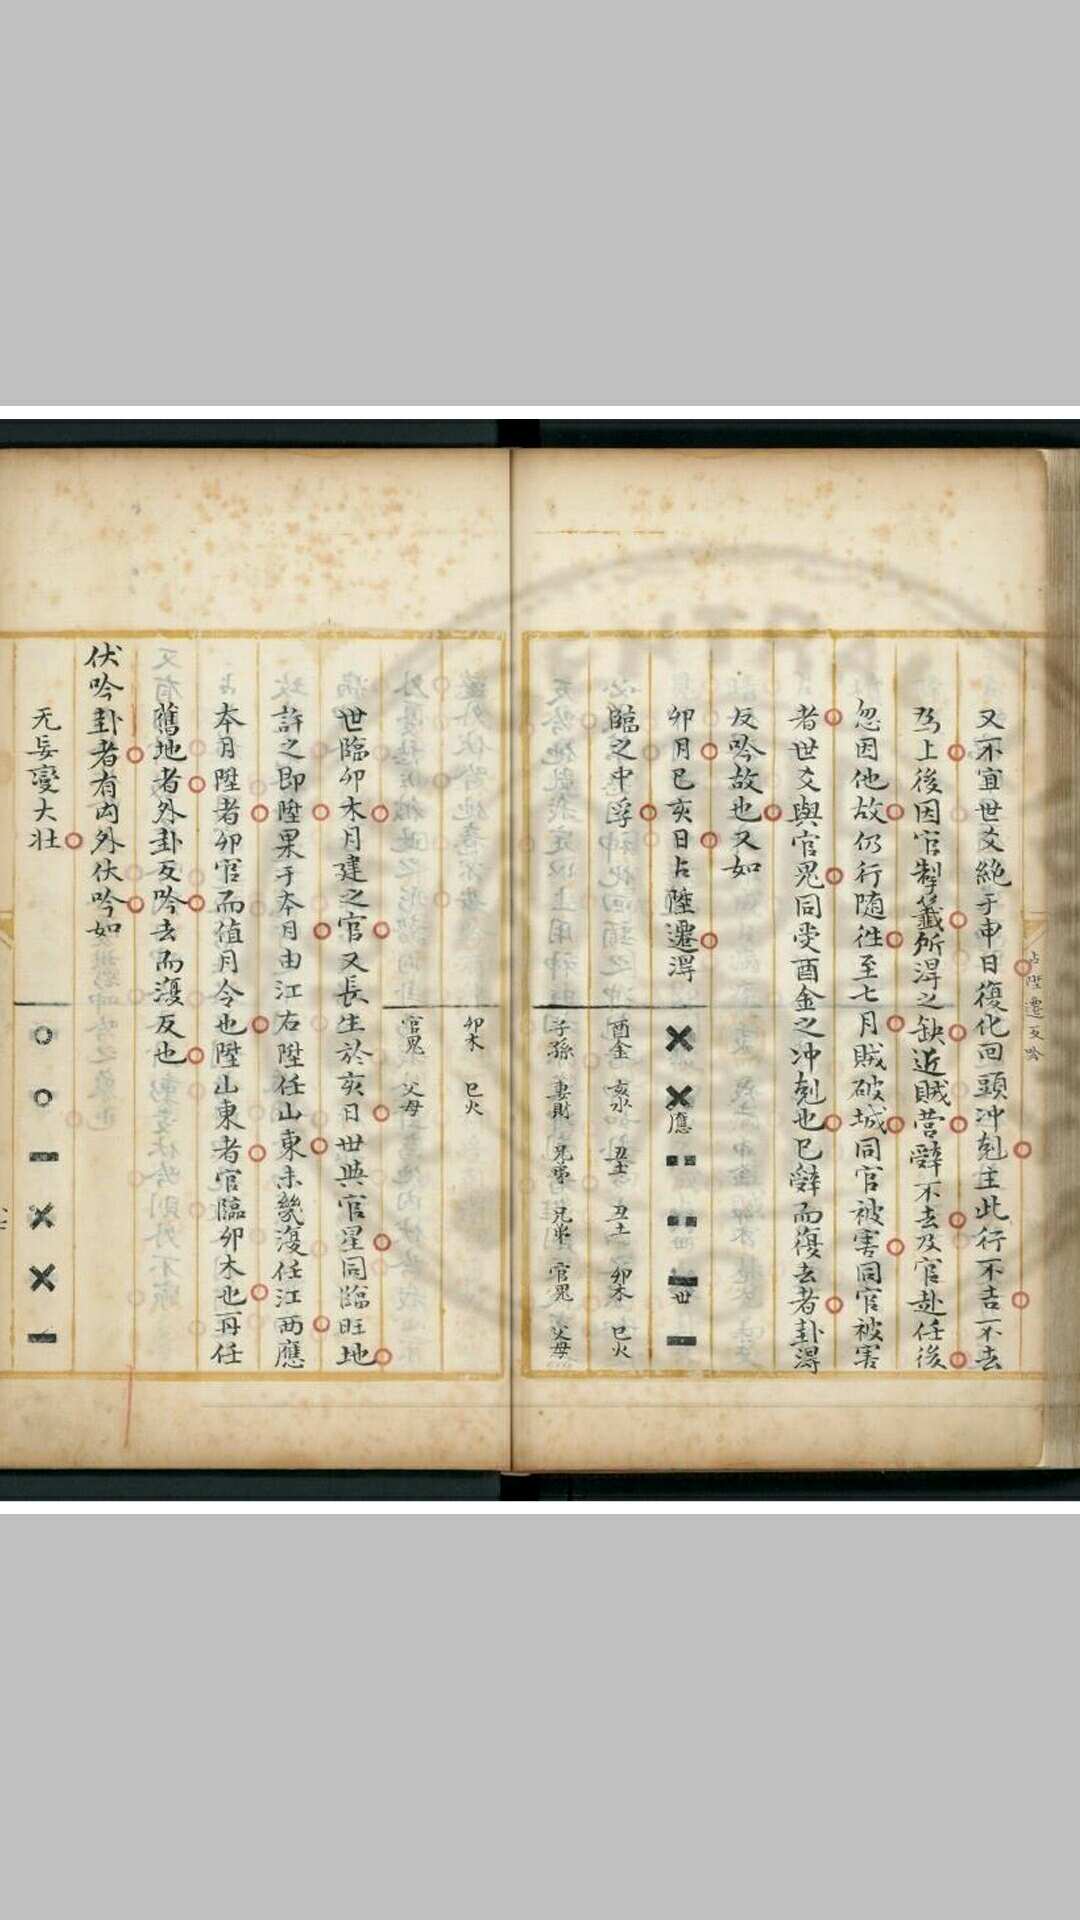 占陞遷反吟
又不宜世爻絶于申日復化回頭冲剋主此行不吉不去
為上後因官掣籤所淂之缺近賊營辭不去及官赴任後
忽因他故仍行随徃至七月賊破城同官被害同官被害
者世爻與官鬼同受酉金之冲剋也已辭而復去者卦淂
反吟故也又如
卯月巳亥日占陞遷淂
應
世
臨之中孚
酉金 亥水 丑土 丑土 卯木 巳火
子孫 妻財 兄弟 兄弟 官鬼 父母
卯木 巳火
官鬼 父母
世臨卯木月建之官又長生於亥日世與官星同臨旺地
許之即陞果于本月由江右陞任山東未幾復任江西應
本月陞者卯官而值月令也陞山東者官臨卯木也再任
舊地者外卦反吟去而復反也
伏吟卦者有内外伏吟如
无妄變大壮